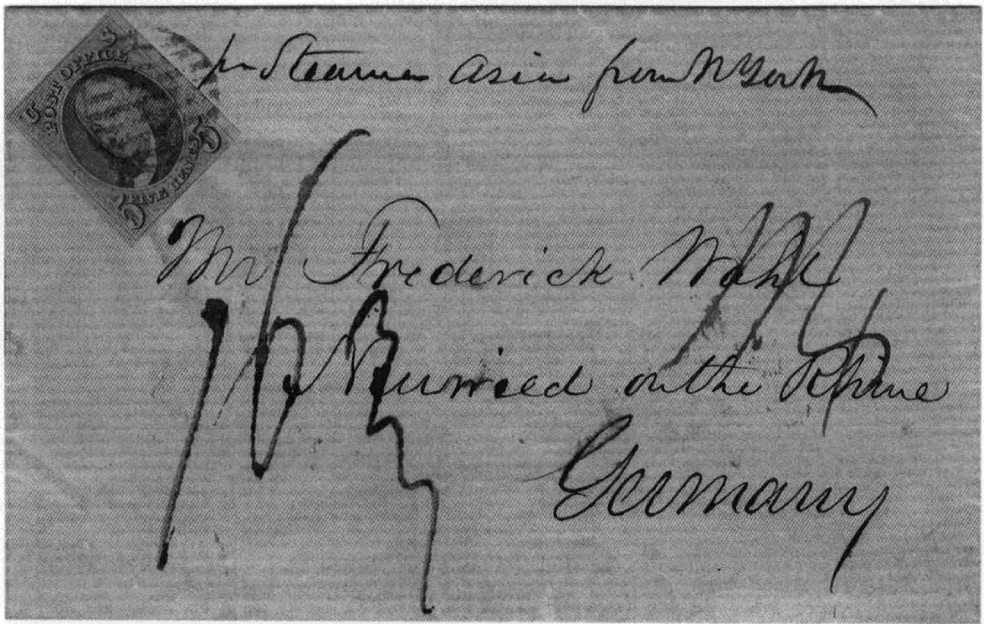 POST OFFICE
FIVE CENTS
5 5
pr Steamer Asia from N York
Mr Frederick Wahl
Neuwied on the Rhine
Germany